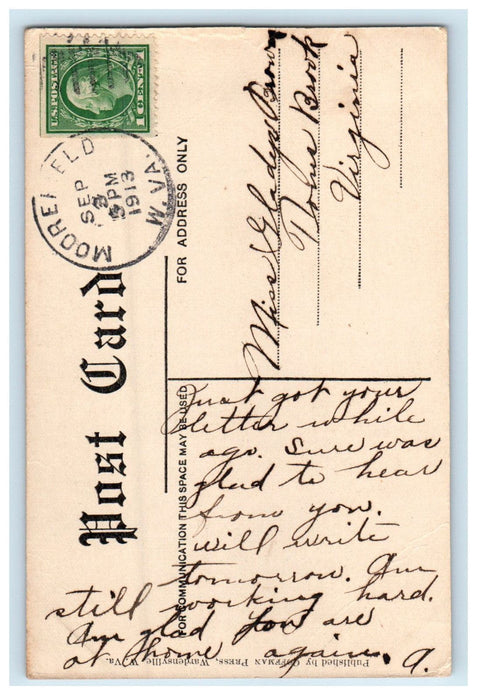 U.S. POSTAGE
1 CENT 1
MOOREFIELD W. VA.
SEP
5 PM
1913
Post Card
FOR ADDRESS ONLY
Miss Gladys Brown
Toms Brook
Virginia
FOR COMMUNICATION THIS SPACE MAY BE USED
Just got your
letter while
ago. Sure was
glad to hear
from you.
will write
tomorrow. Am
still working hard.
Am glad you are
at home again.
a.
Published by COFFMAN PRESS, Wardensville W. Va.